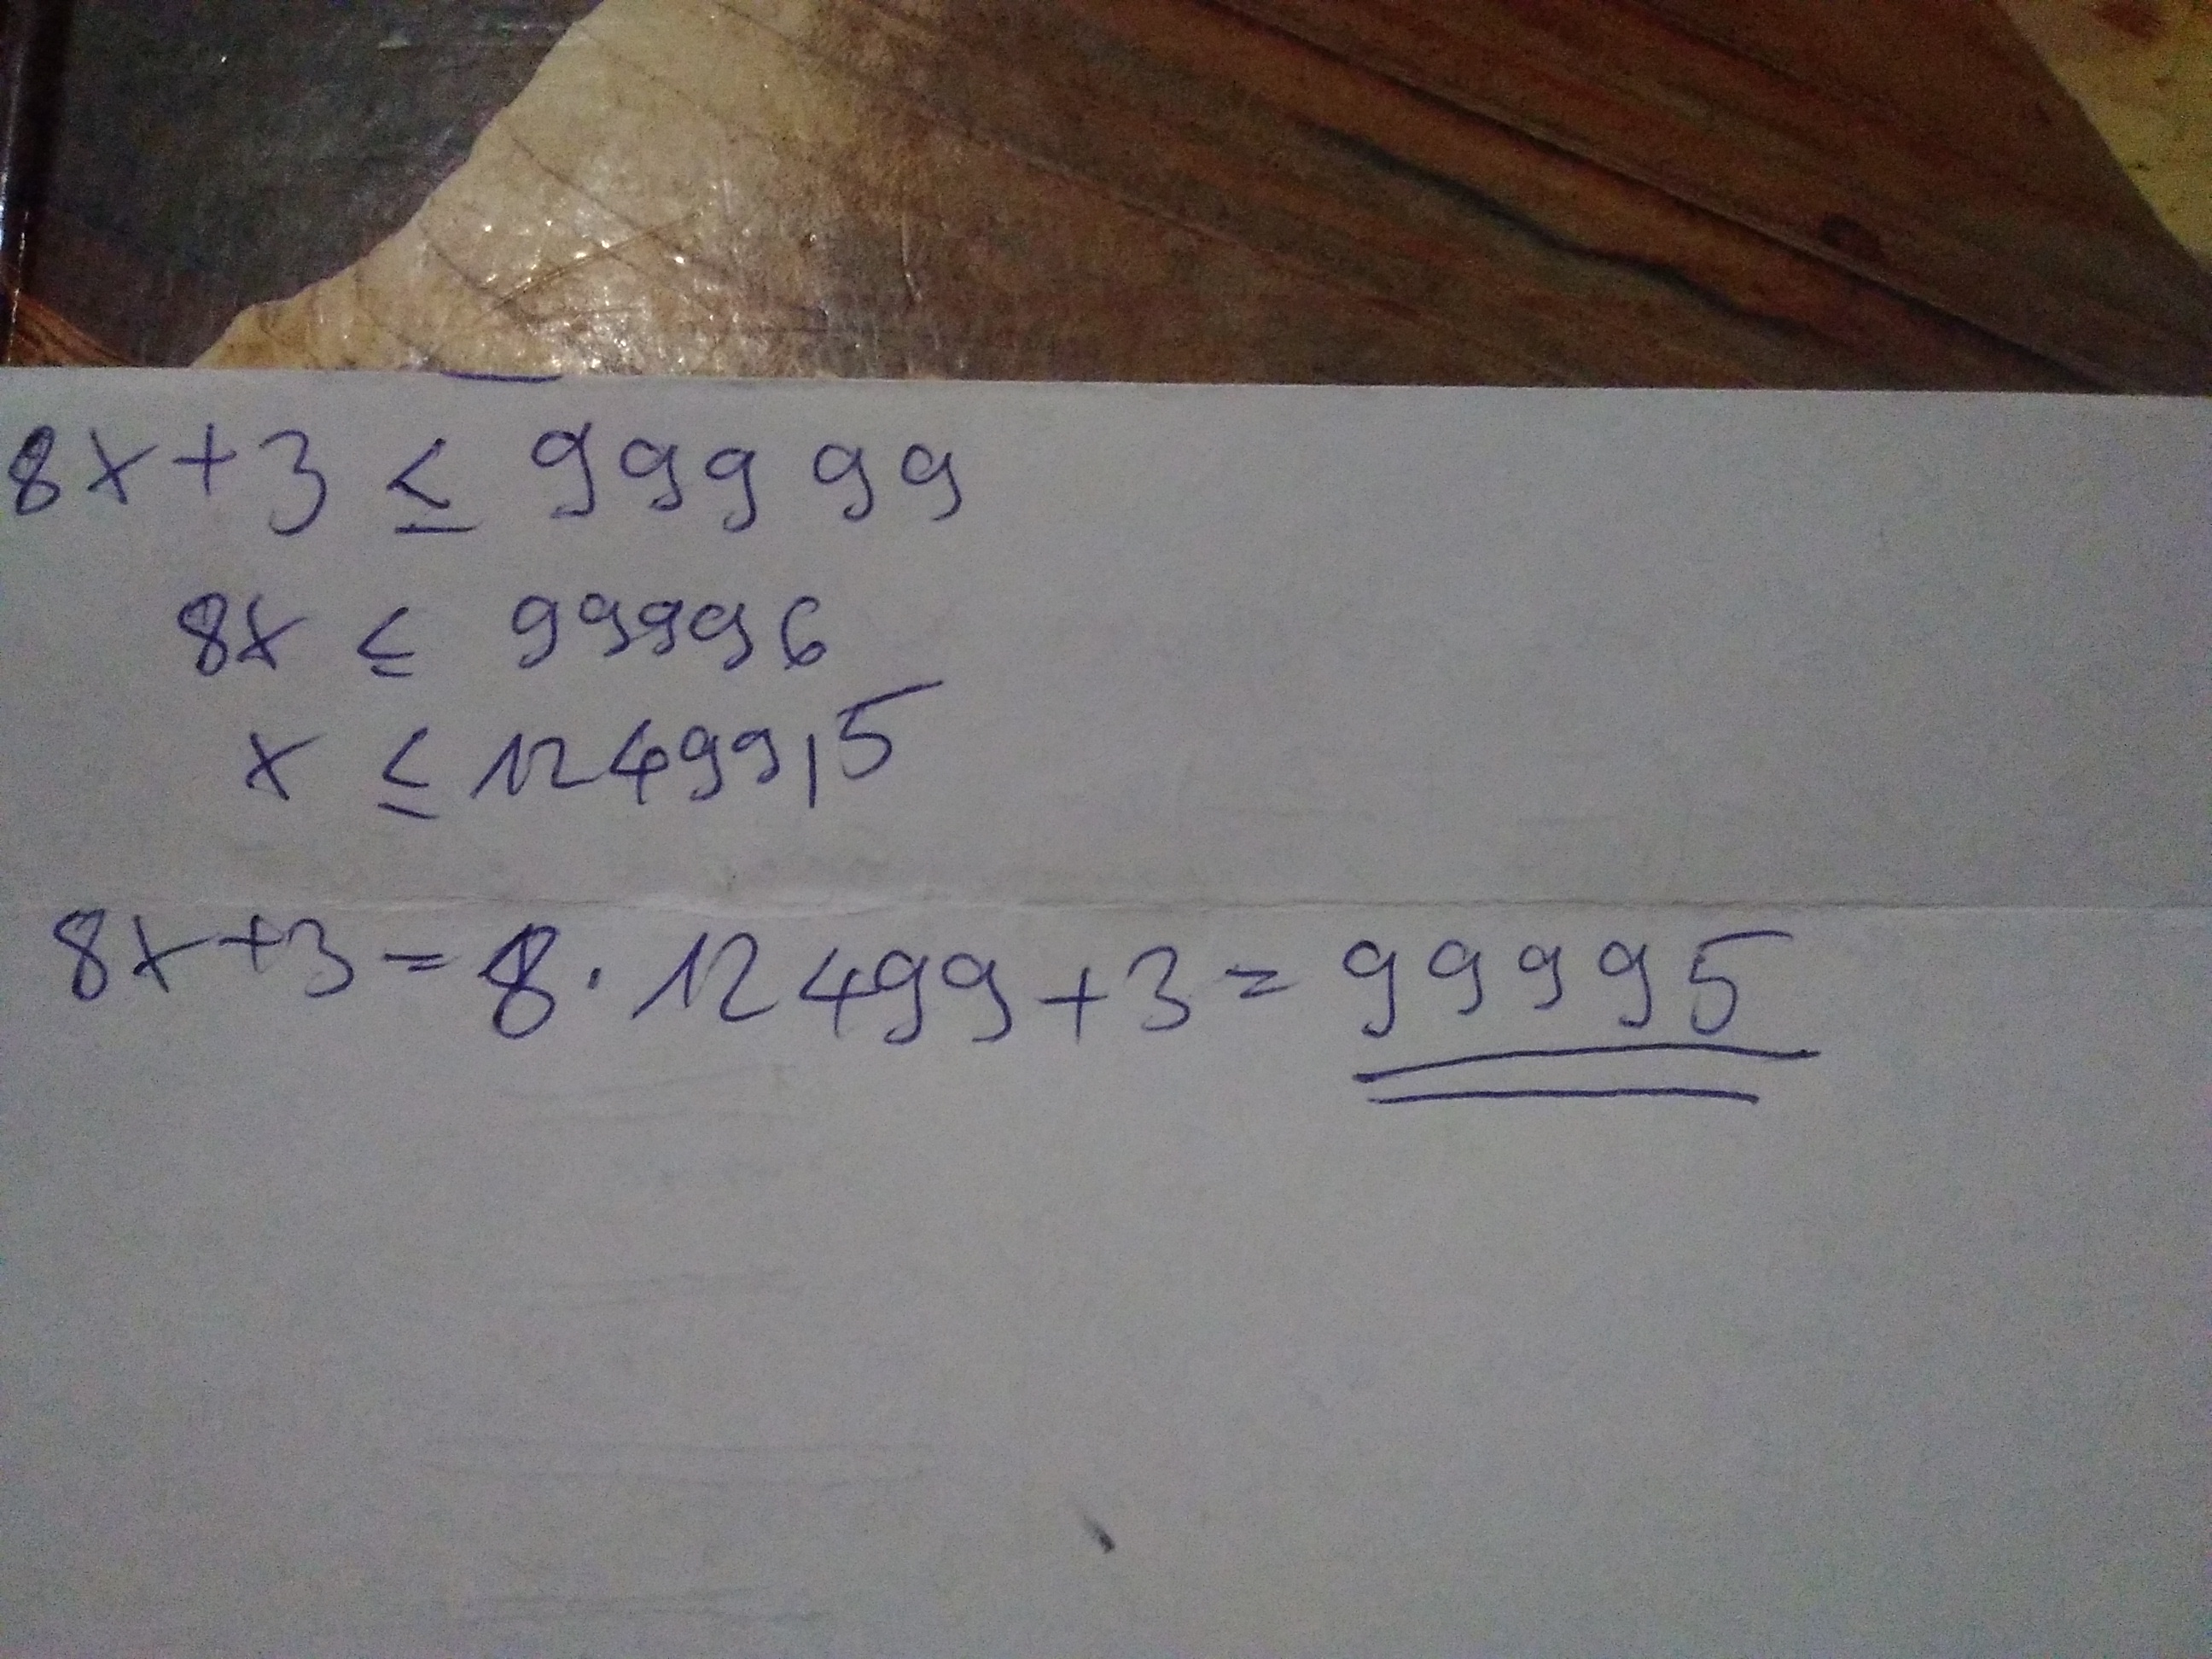 8x+3 ≤ 99999
8x ≤ 99996
x ≤ 12499,5
8x+3 = 8·12499+3 = 99995